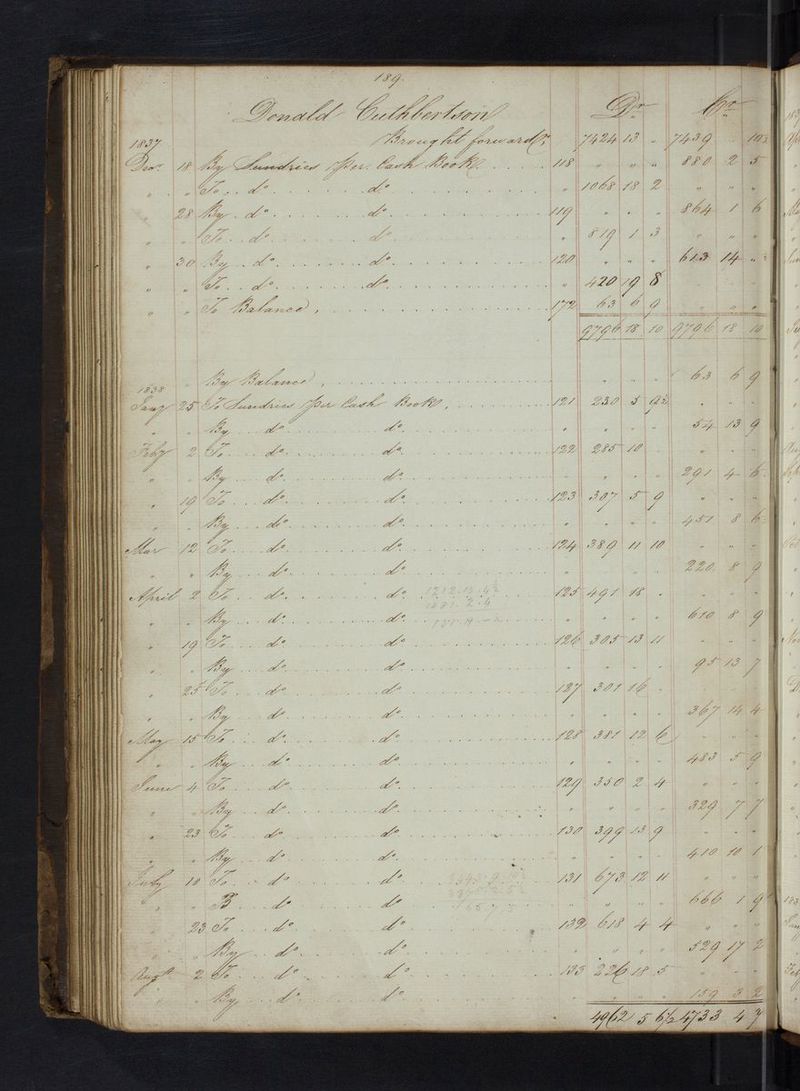 189.
Donald Cuthbertson Dr Cr
1837 Brought forward 7424 13 " 7439 " 10½
Dec. 18 By Sundries per Cash Book 118 " " " 880 2 5
" " To do do " 1068 18 2 " " "
" 28 By do do 119 " " " 864 1 6
" " To do do " 819 1 3 " " "
" 30 By do do 120 " " " 613 14 "
" " To do do " 420 19 8
" " To Balance 172 63 6 9 " " "
9796 18 10 9796 18 10
" By Balance " " " 63 6 9
1838
Jany 25 To Sundries per Cash Book 121 230 5 9½ " " "
" " By do do " " " " 54 13 9
Feby 2 To do do 122 285 10 " " "
" " By do do " " " 291 4 6
" 19 To do do 123 307 5 9 " " "
" " By do do " " " " 451 8 6
Mar 12 To do do 124 389 11 10 " " "
" " By do do " " " " 220 8 9
April 2 To do do 125 491 18 " " " "
" " By do do " " " " 610 8 9
" 19 To do do 126 305 13 11 " " "
" " By do do " " " " 95 13 7
" 25 To do do 127 301 16 " " " "
" " By do do " " " " 367 14 4
May 15 To do do 128 381 12 6 " " "
" " By do do " " " " 483 5 9
June 4 To do do 129 350 2 4 " " "
" " By do do " " " " 329 7 7
" 23 To do do 130 399 13 9 " " "
" " By do do " " " " 410 10 1
July 10 To do do 131 673 12 11 " " "
" " B do do " " " " 666 1 9
23 To do do 132 618 4 4 " " "
" " By do do " " " " 529 17 2
Augt 2 To do do 133 226 18 5 " " "
" " By do do " " " " 159 3 2
4962 5 6½ 4733 4 7